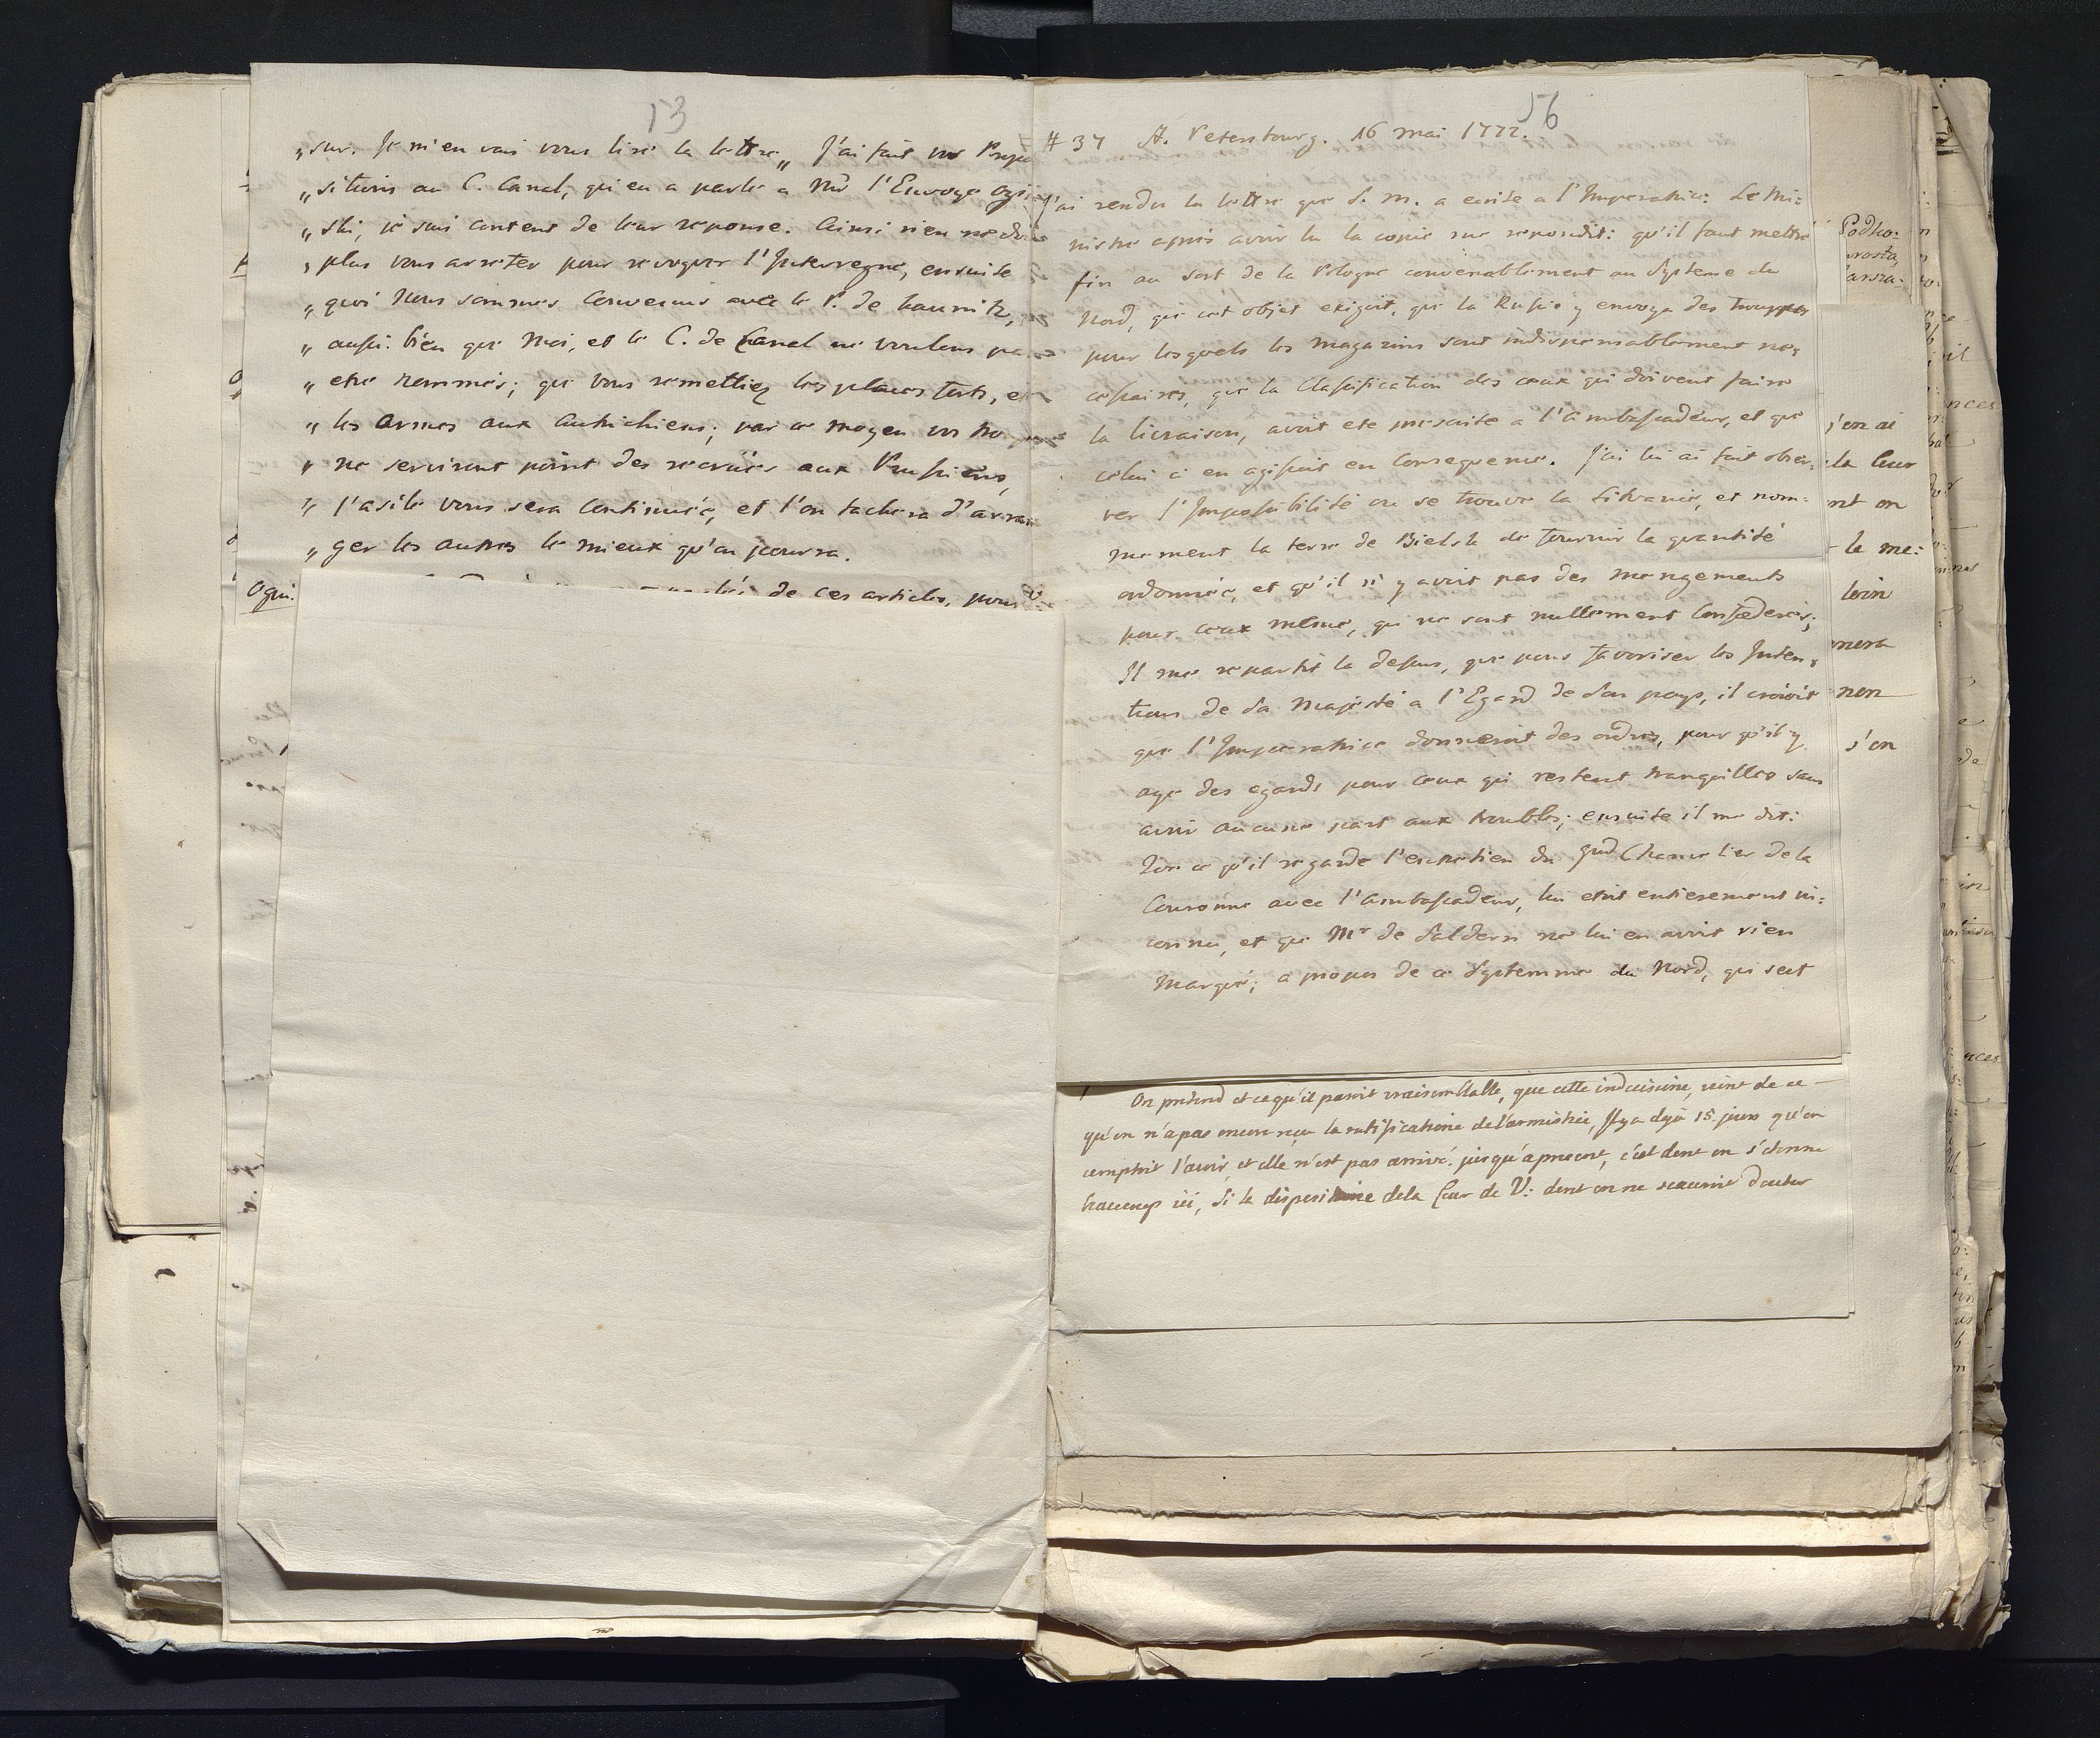 53
„sur. Je m'en vais vous lire la lettre„ J'ai fait vos Propo
„sitions au C. Canal, qui en a parlé a Mr l'Envoyé Ogi
„ski, je suis content de leur reponse. Ainsi rien ne doit
„plus vous arreter pour revoquer l'Interregne, ensuite
„quoi nous sommes convenus avec le P. de Kaunitz,
„aussi bien que Moi, et le C. de Canal ne voulons pas
„etre nommés; que vous remettiez les places forts, et
„les armes aux Autrichiens; par ce moyen vos trouppes
„ne serviront point des recruës aux Prussiens,
„l'asile vous sera continuée, et l'on tachera d'arran
„ger les autres le mieux qu'on pourra.
Ogin:
de ces articles, pour
56
# 37 St. Petersbourg. 16 mai 1772.
J'ai rendu la lettre que S. M. a ecrite a l'Imperatrice. Le Mi:
nistre après avoir lu la copie me repondit: qu'il faut mettre
fin au sort de la Pologne convenablement au Systeme du
Nord, que cet objet exigoit, que la Russie y envoya des trouppes
pour lesquels les magazins sont indispensablement ne:
cessaires, que la Classification des ceux qui doivent faire
la livraison, avoit eté prescrite a l'Ambassadeur, et que
celui ci en agissoit en consequence. J'ai lui ai fait obser:
ver l'Impossibilité ou se trouve la Lithuanie, et nom:
mement la terre de Bielsk de fournir la quantité
ordonnée, et qu'il n'y avoit pas des mengements
pour ceux meme, qui ne sont nullement Confœderés;
Il me repartit la dessus, que pour favoriser les Inten:
tions de Sa Majesté a l'Egard de son pays, il croioit
que l'Imperatrice donneroit des ordres, pour qu'il y
aye des egards pour ceux qui restent tranquilles sans
avoir aucune part aux troubles; ensuite il me dit:
Que ce qu'il regarde l'entretien du Grd Chancelier de la
Couronne avec l'Ambassadeur, lui etoit entierement in:
connu, et que Mr de Saldern ne lui en avoit rien
Marqué; a propos de ce Systemme du Nord, qui sert
On pretend et ce qu'il paroit vraisemblable, que cette indecisione, vient de ce
qu'on n'a pas encore reçu la ratificatione de l'armistice, Il y a dejà 15. jours qu'on
comptoit l'avoir, et elle n'est pas arrivé jusqu'à present, c'est dont on s'etonne
beaucoup ici, Si la dispositione de la Cour de V: dont on ne scauroit douter
j'en ai
la leur
nt on
le me:
loin
non
s'on